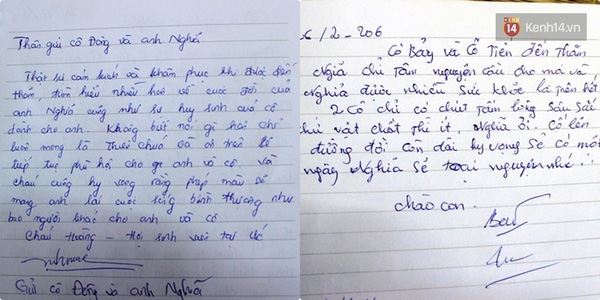 Thân gửi cô Đông và anh Nghĩa
Thật sự cảm kích và khâm phục khi được đến
thăm, tìm hiểu nhiều hơn về cuộc sống của
anh Nghĩa cũng như sự hy sinh của cô
dành cho anh. Không biết nói gì hơn chỉ
luôn mong là Thiên chúa và ơn trên sẽ
tiếp tục phù hộ cho gđ anh và cô. Và
cháu cũng hy vọng rằng phép màu sẽ
mang anh lại cuộc sống bình thường như
bao người khác cho anh và cô.
Cháu
Gửi cô Đông và anh Nghĩa
kenh14.vn
/2-206
Cô Bảy và Cô Tiên đến Thăm
Nghĩa chỉ Tâm nguyện cầu cho má và
Nghĩa được nhiều Sức khỏe là trên hết.
2 Cô chỉ có chút Tấm lòng Sâu Sắc
vật chất thì ít, Nghĩa ơi. Cố lên
đường đời còn dài hy vọng Sẽ có một
ngày Nghĩa Sẽ toại nguyện nhé...
chào con.